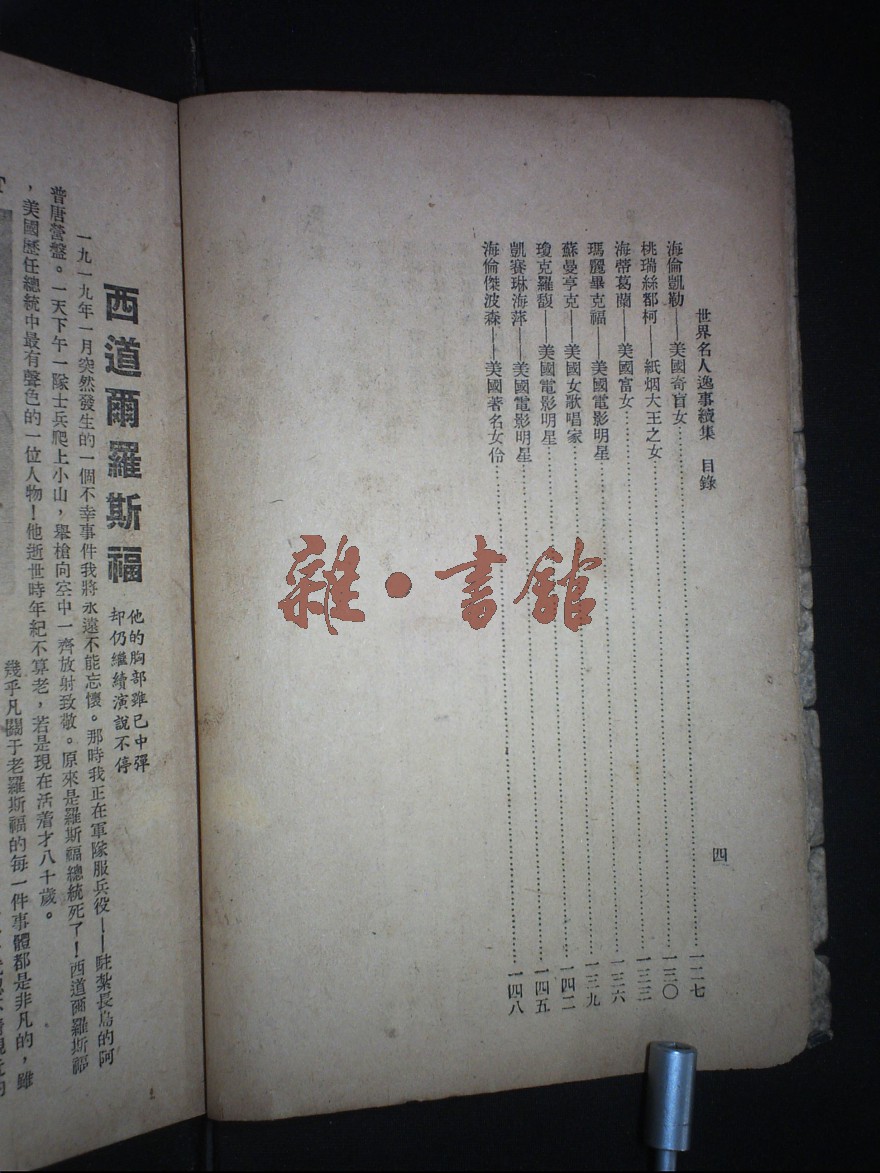 世界名人逸事續集 目錄
四
海倫凱勒——美國奇盲女……一二七
桃瑞絲都柯——紙烟大王之女……一三〇
海蒂葛蘭——美國富女……一三三
瑪麗畢克福——美國電影明星……一三六
蘇曼亨克——美國女歌唱家……一三九
瓊克羅馥——美國電影明星……一四二
凱賽琳海萍——美國電影明星……一四五
海倫傑波森——美國著名女伶……一四八
雜·書館
西道爾羅斯福
他的胸部雖已中彈
却仍繼續演說不停
一九一九年一月突然發生的一個不幸事件我將永遠不能忘懷。那時我正在軍隊服兵役——駐紮長島的阿
普唐營盤。一天下午一隊士兵爬上小山，舉槍向空中一齊放射致敬。原來是羅斯福總統死了！西道爾羅斯福
，美國歷任總統中最有聲色的一位人物！他逝世時年紀不算老，若是現在活着才八十歲。
幾乎凡關于老羅斯福的每一件事體都是非凡的，雖